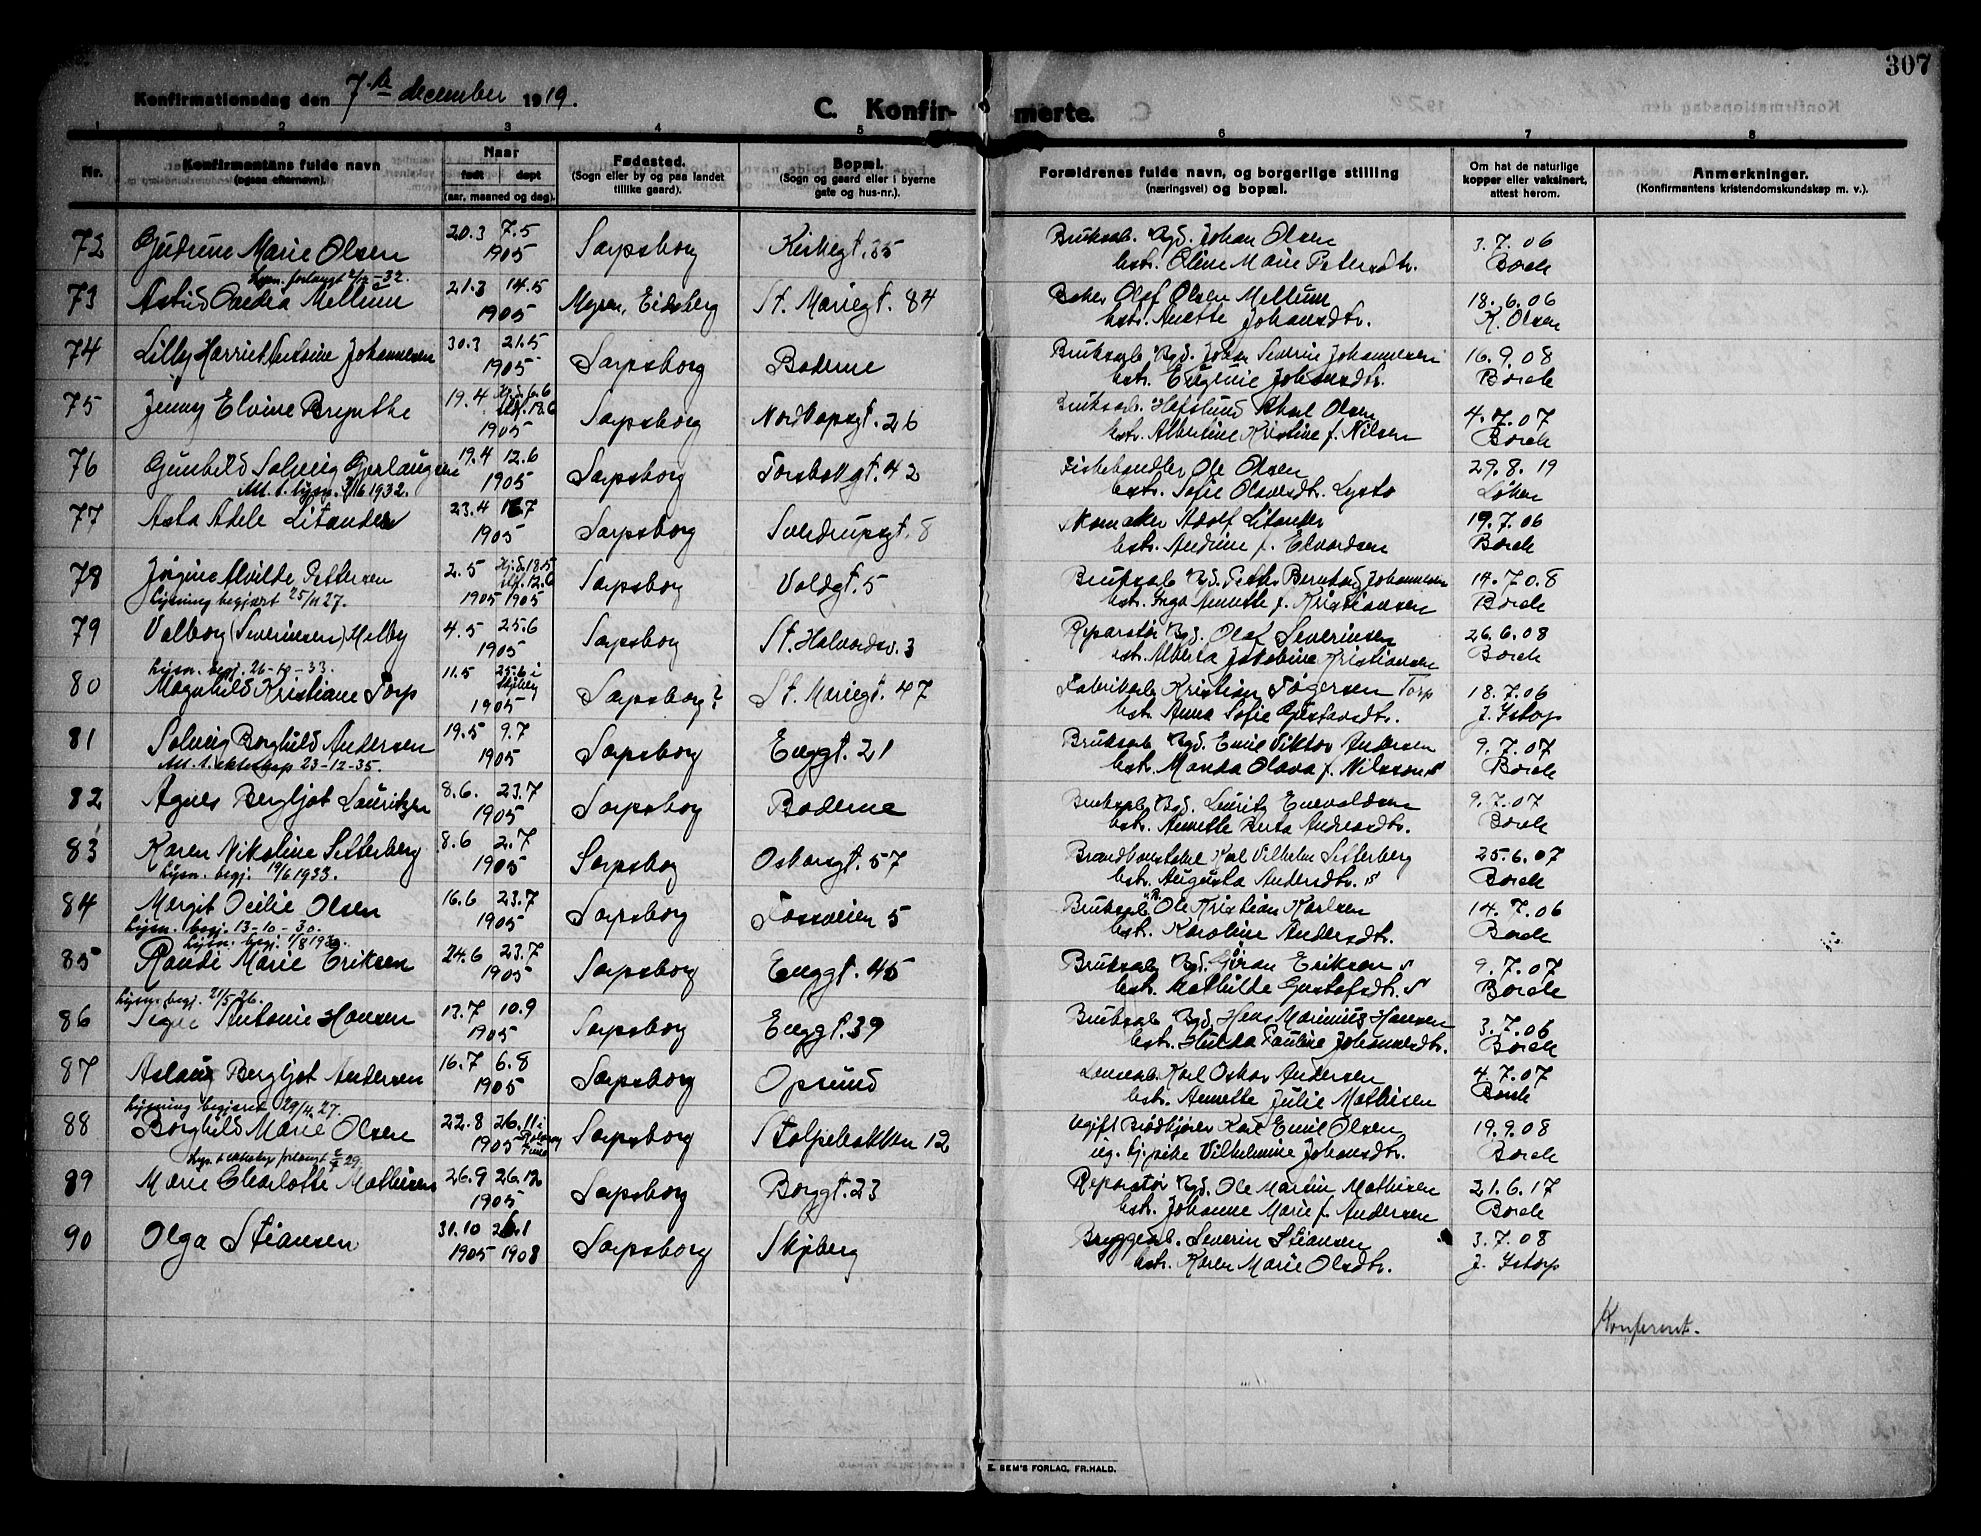 307
Konfirmationsdag den 7de december 1919.
C. Konfirmerte.
1 2 3 4 5 6 7 8
Nr.
Konfirmantens fulde navn
(ogsaa efternavn).
Naar
født
døpt
(aar, maaned og dag).
Fødested.
(Sogn eller by og paa landet
tillike gaard).
Bopæl.
(Sogn og gaard eller i byerne
gate og hus-nr.).
Forældrenes fulde navn, og borgerlige stilling
(næringsvei) og bopæl.
Om hat de naturlige
kopper eller vaksinert,
attest herom.
Anmerkninger.
(Konfirmantens kristendomskundskap m. v.).
72 Gudrun Marie Olsen 20.3 7.5 Sarpsborg Kirkegt. 35 Bruksarb. Bgd. Johan Olsen 3.7.06
1905 hstr. Oline Marie Petersdtr. Borch
Lysn. forlangt 2/12-32.
73 Astrid Andrea Mellum 21.3 14.5 Mysen, Eidsberg St. Mariegt. 84 Baker Olaf Olsen Mellum 18.6.06
1905 hstr. Anette Johansdtr. K. Olsen
74 Lilly Harriet Johannesen 30.3 21.5 Sarpsborg Boderne Bruksarb. Bgd. Johan Severin Johannesen 16.9.08
1905 hstr. Eugenie Johansdtr. Borch
75 Jenny Elvine 19.4 Hj.d. 6.6 Sarpsborg Nordkapgt. 26 Bruksarb. Hafslund Karl Olsen 4.7.07
1905 hstr. Albertine Kristine f. Nilsen Borch
76 Gunhild Solveig Gerlaugsen 19.4 12.6 Sarpsborg Torsbekgt. 42 Fiskehandler Ole Olsen 29.8.19
Att. t. lysn. 3/6 1932. 1905 hstr. Sofie Løken
77 Asta Adele Litander 23.4 Sarpsborg Sverdrupsgt. 8 Skomaker Adolf Litander 19.7.06
1905 hstr. Andrine f. Edvardsen Borch
78 Jørgine Alvilde Pettersen 2.5 Hj.d. 18.5 Sarpsborg Voldgt. 5 Bruksarb. Bgd. Petter Bernhard Johannesen 14.7.08
Lysning begjært 25/11 27. 1905 1905 hstr. Inga Annette f. Kristiansen Borch
79 Valborg (Severinsen) Melby 4.5 25.6 Sarpsborg St. Halvordsv. 3 Reparatør Bgd. Olaf Severinsen 26.6.08
1905 hstr. Alberta Jakobine Kristiansen Borch
Lysn. begj. 26-10-33.
80 Magnhild Kristiane Torp 11.5 25.6 i Skjeberg Sarpsborg? St. Mariegt. 47 Fabrikarb. Kristian Tøgersen Torp 18.7.06
1905 hstr. Anna Sofie Gustavsdtr. J. Istorp
81 Solveig Borghild Andersen 19.5 9.7 Sarpsborg Enggt. 21 Bruksarb. Bgd. Emil Viktor Andersen 9.7.07
Att. t. ekteskap 23-12-35. 1905 hstr. Manda Olava f. Nilsson s Borch
82 Agnes Bergljot Lauritzen 8.6. 23.7 Sarpsborg Boderne Bruksarb. Bgd. Lauritz Enevaldsen 9.7.07
1905 hstr. Annette Berta Andreasdtr. Borch
83 Karen Nikoline Setterberg 8.6 2.7 Sarpsborg Oskarsgt. 57 Brandkonstabel Karl Vilhelm Setterberg 25.6.07
Lysn. begj. 19/6 1933. 1905 hstr. Augusta Andersdtr. s Borch
84 Margit Ocilie Olsen 16.6 23.7 Sarpsborg Fossveien 5 Bruksarb. Ole Kristian Karlsen 14.7.06
Lysn. begj. 13-10-30. 1905 hstr. Karoline Andersdtr. Borch
85 Randi Marie Eriksen 24.6 23.7 Sarpsborg Enggt. 45 Bruksarb. Bgd. Gøran Eriksen s 9.7.07
1905 hstr. Mathilde Gustafsdtr. s Borch
Lysn. begj. 21/5 26.
86 Signe Antonie Hansen 13.7 10.9 Sarpsborg Enggt. 39 Bruksarb. Bgd. Hans Marinius Hansen 3.7.06
1905 hstr. Hulda Pauline Johannesdtr. Borch
87 Aslaug Bergljot Andersen 16.7 6.8 Sarpsborg Opsund Karl Oskar Andersen 4.7.07
1905 hstr. Annette Julie Mathisen Borch
Lysning begjæret 29/11 27.
88 Borghild Marie Olsen 22.8 26.11 i Sarpsborg Stolpebakken 12 Ugift Brødkjører Karl Emil Olsen 19.9.08
1905 ug. tj.pike Vilhelmine Johansdtr. Borch
89 Marie Charlotte Mathisen 26.9 26.12 Sarpsborg Borggt. 23 Reparatør Bgd. Ole Martin Mathisen 21.6.17
1905 hstr. Johanne Marie f. Andersen Borch
90 Olga Stiansen 31.10 26.1 Sarpsborg Skjeberg Bryggearb. Severin Stiansen 3.7.08
1905 1908 hstr. Karen Marie Olsdtr. J. Istorp
Konferert.
E. SEM'S FORLAG, FR.HALD.